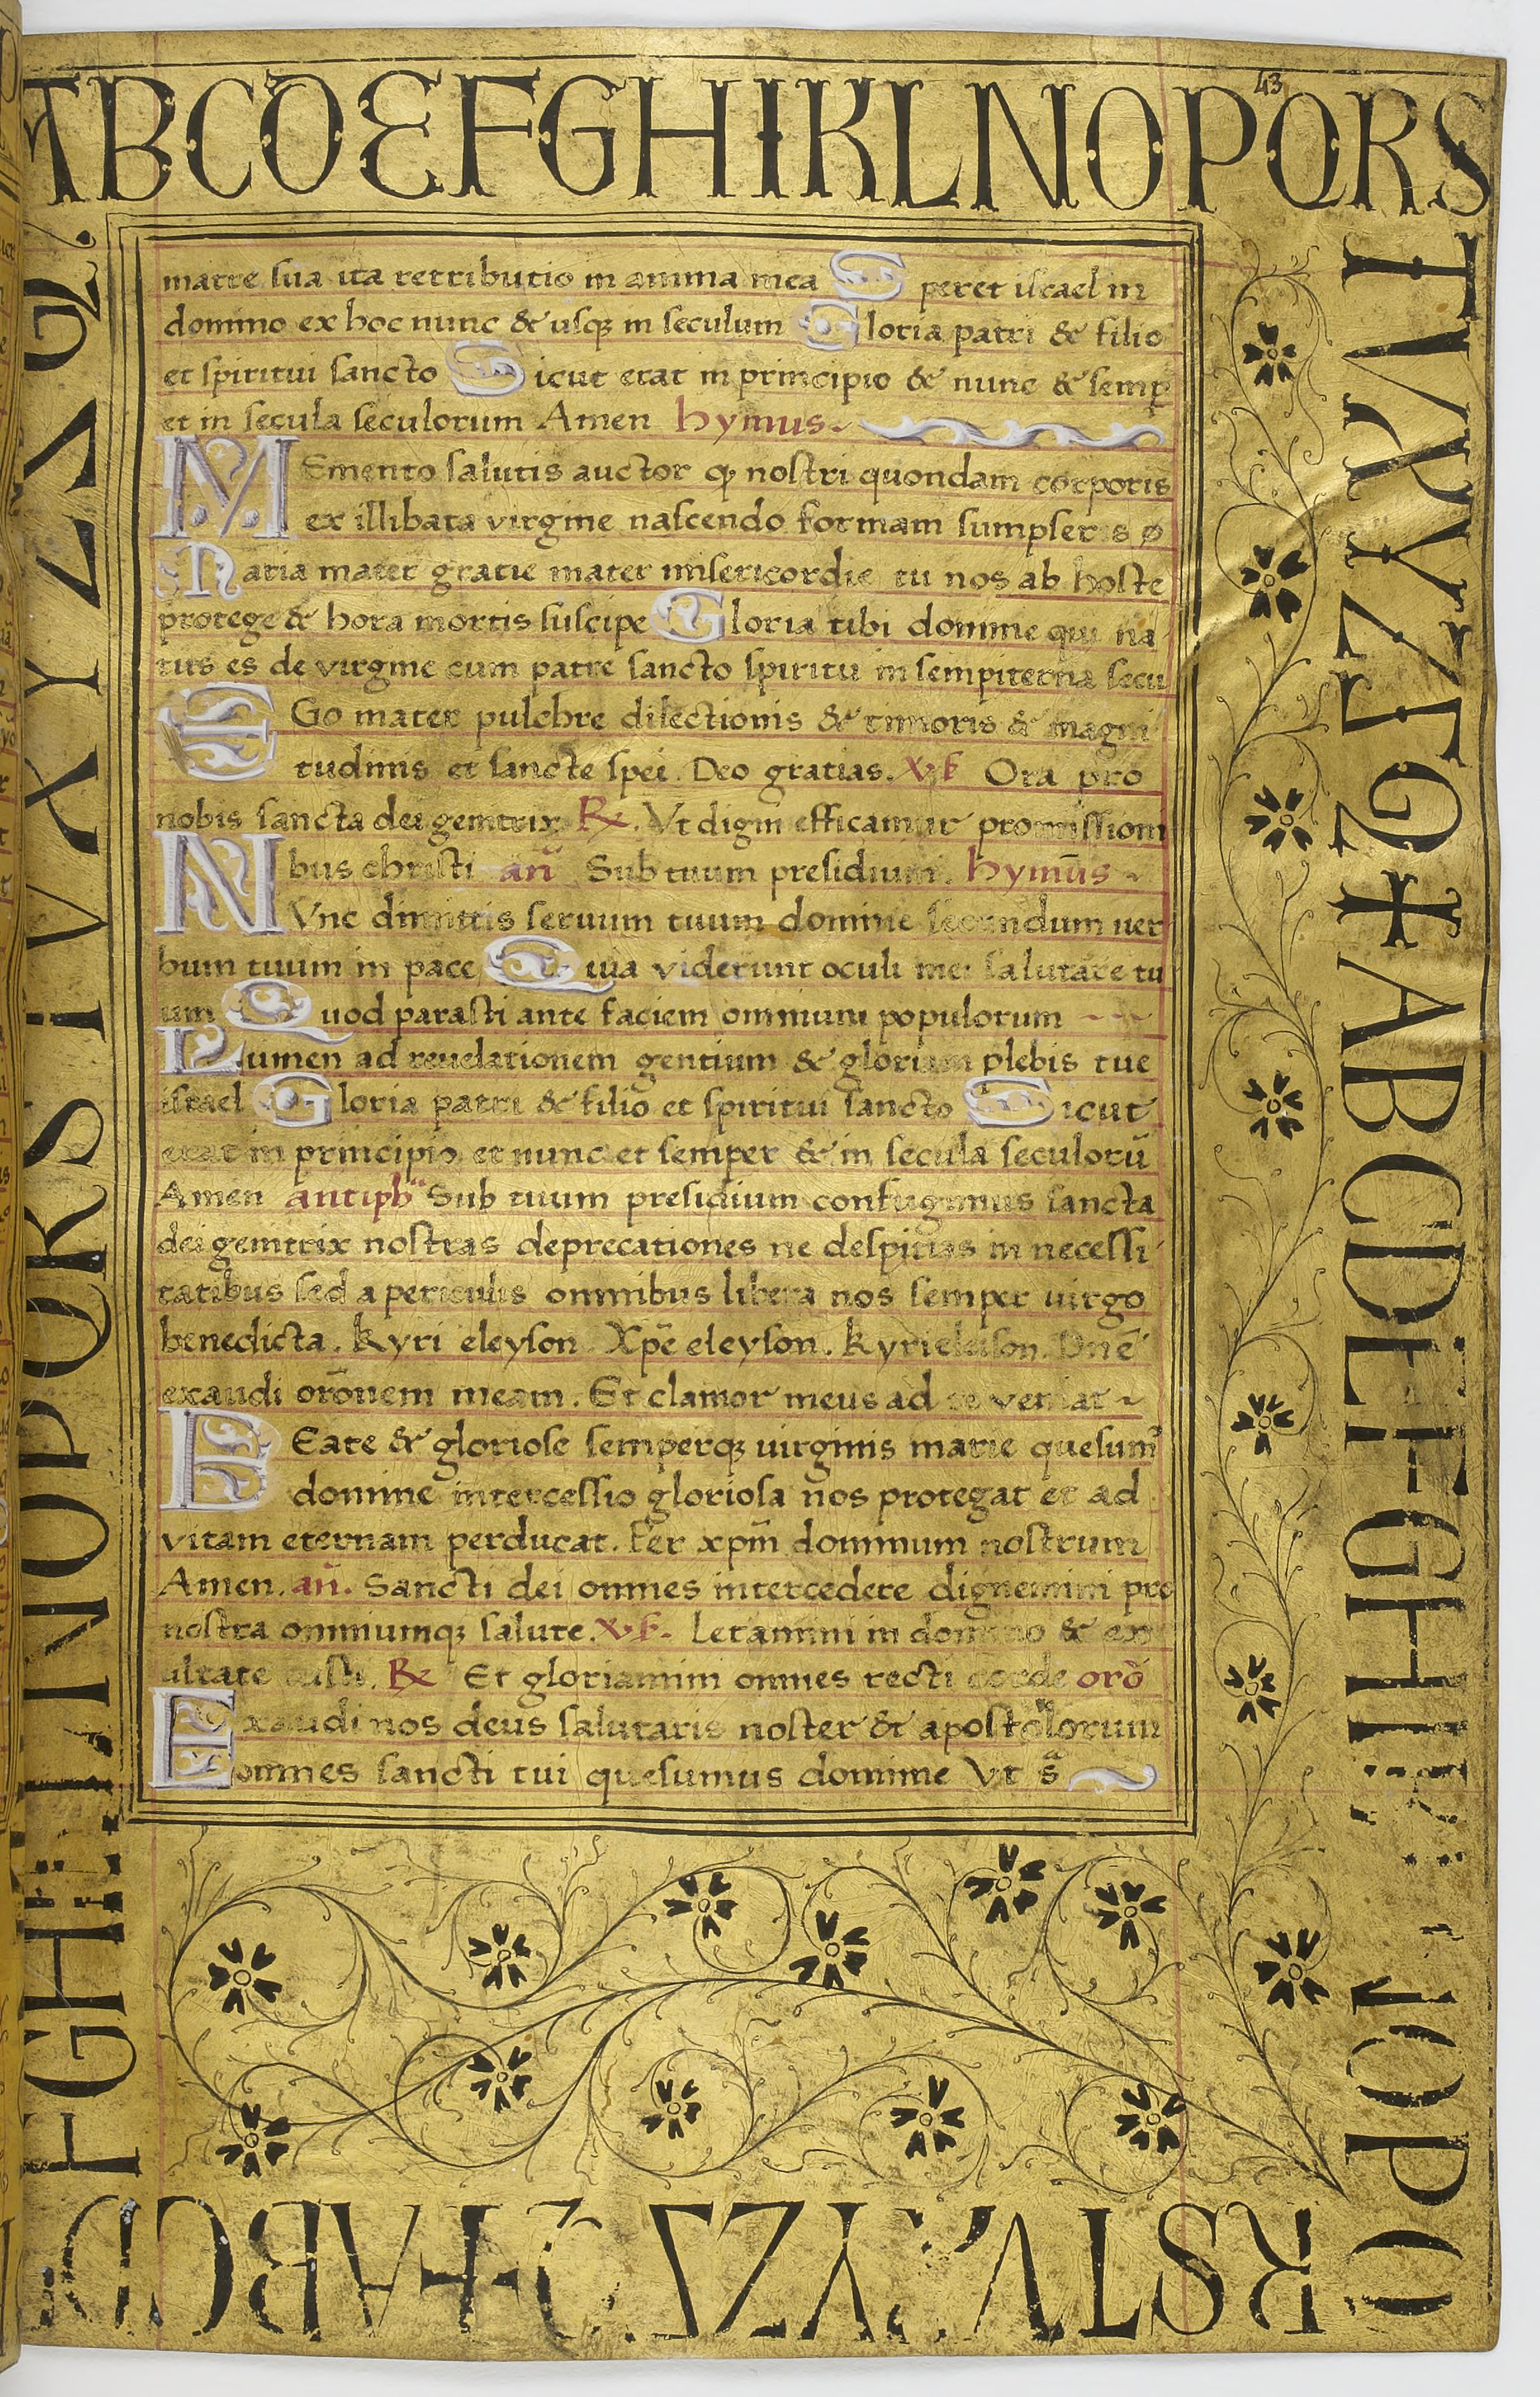 43
ABCDEFGHIKLNOPQRS
TVXYZ
ABCDEFGHI
NOPQ
RSTV
YZ
ABCD
FGHI
LNOPQRSTVXYZ
matre sua ita retributio in anima mea Speret israel in
domino ex hoc nunc & usqꝫ in seculum Gloria patri & filio
et spiritui sancto Sicut erat in principio & nunc & semꝑ
et in secula seculorum Amen hymus
MEmento salutis auctor ꝙ nostri quondam corporis
ex illibata virgine nascendo formam sumpseris
Maria mater gratie mater misericordie tu nos ab hoste
protege & hora mortis suscipe Gloria tibi domine qui na
tus es de virgine cum patre sancto spiritu in sempiterna secu
EGo mater pulchre dilectionis & timoris & magni
tudinis et sancte spei. Deo gratias. ℣ Ora pro
nobis sancta dei genitrix ℟. Vt digni efficamur promissioni
bus christi añ Sub tuum presidium. hymñs
NVnc dimittis seruum tuum domine secundum uer
bum tuum in pace Quia viderunt oculi mei salutare tu
um Quod parasti ante faciem omnium populorum
Lumen ad reuelationem gentium & gloriam plebis tue
israel Gloria patri & filio et spiritui sancto Sicut
erat in principio et nunc et semper & in secula seculorū
Amen antiphᵃ Sub tuum presidium confugimus sancta
dei genitrix nostras deprecationes ne despicias in necessi
tatibus sed a periculis omnibus libera nos semper uirgo
benedicta. kyri eleyson Xp̄e eleyson. kyrieleison. Dn̄e
exaudi orōnem meam. Et clamor meus ad te veniat
BEate & gloriose semperqꝫ uirginis marie quesumꝰ
domine intercessio gloriosa nos protegat et ad
vitam eternam perducat. Per xp̄m dominum nostrum
Amen. añ. Sancti dei omnes intercedere dignemini pro
nostra omniumqꝫ salute. ℣. Letamini in domino & ex
ultate iusti. ℟ Et gloriamini omnes recti corde orō
Exaudi nos deus salutaris noster & apostolorum
omnes sancti tui quesumus domine Vt sᵃ